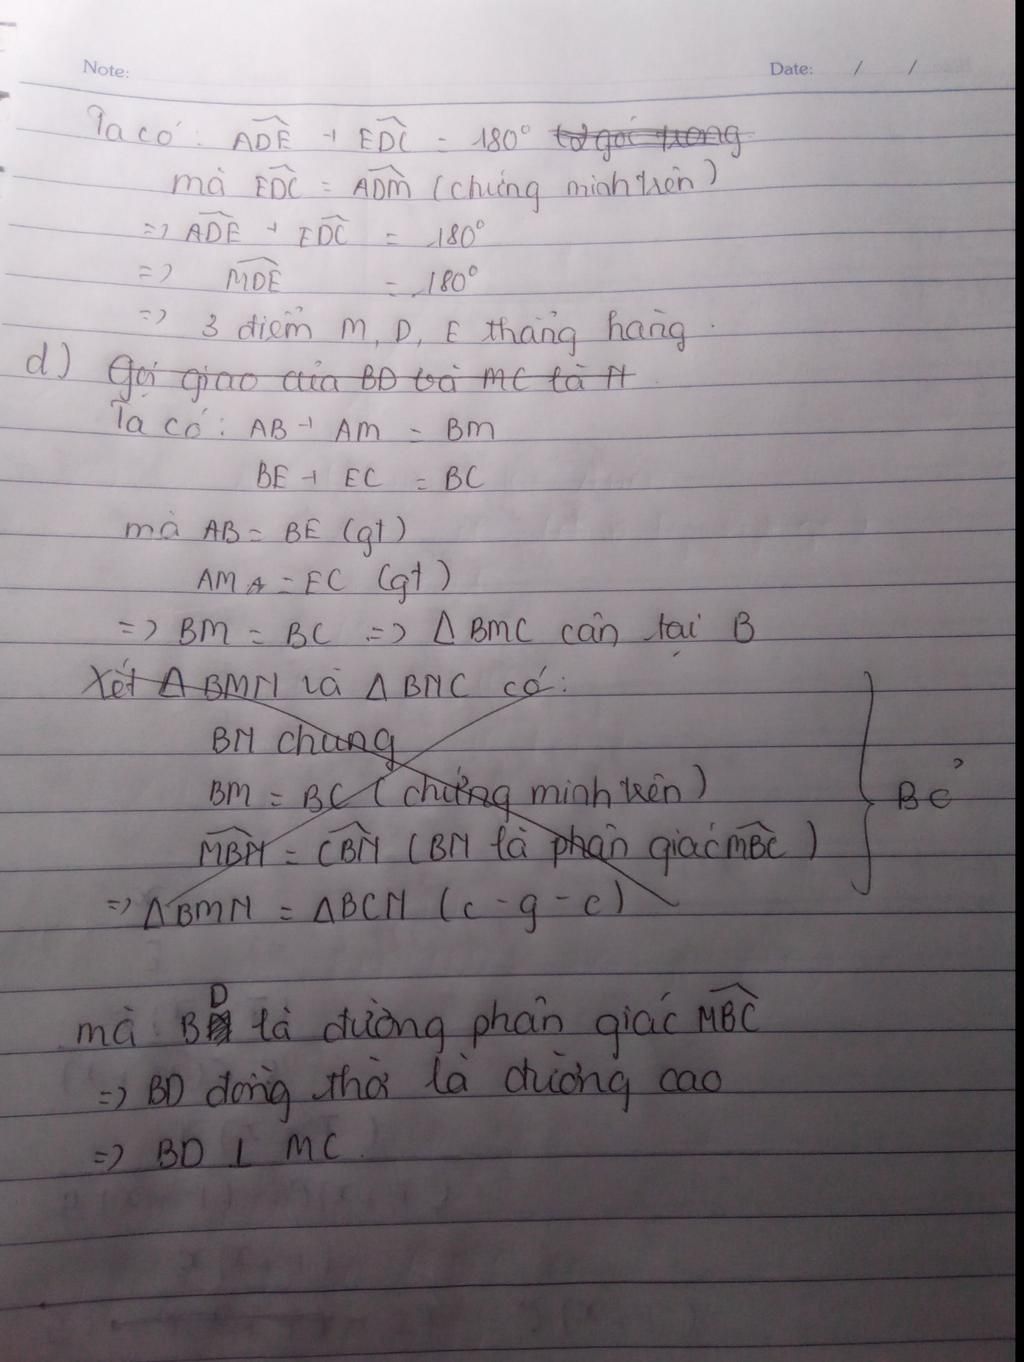 Note: Date: / /
Ta có: ADE + EDC = 180° từ góc trong
mà EDC = ADM (chứng minh trên)
=> ADE + EDC = 180°
=> MDE = 180°
=> 3 điểm M, D, E thẳng hàng.
d) Gọi giao của BD và MC là N
Ta có: AB + AM = BM
BE + EC = BC
mà AB = BE (gt)
AM = EC (gt)
=> BM = BC => Δ BMC cân tại B
Xét Δ BMN và Δ BNC có:
BN chung
BM = BC (chứng minh trên)
MBN = CBN (BN là phân giác MBC)
Bỏ
=> ΔBMN = ΔBCN (c - g - c)
mà BD là đường phân giác MBC
=> BD đồng thời là đường cao
=> BD ⊥ MC.